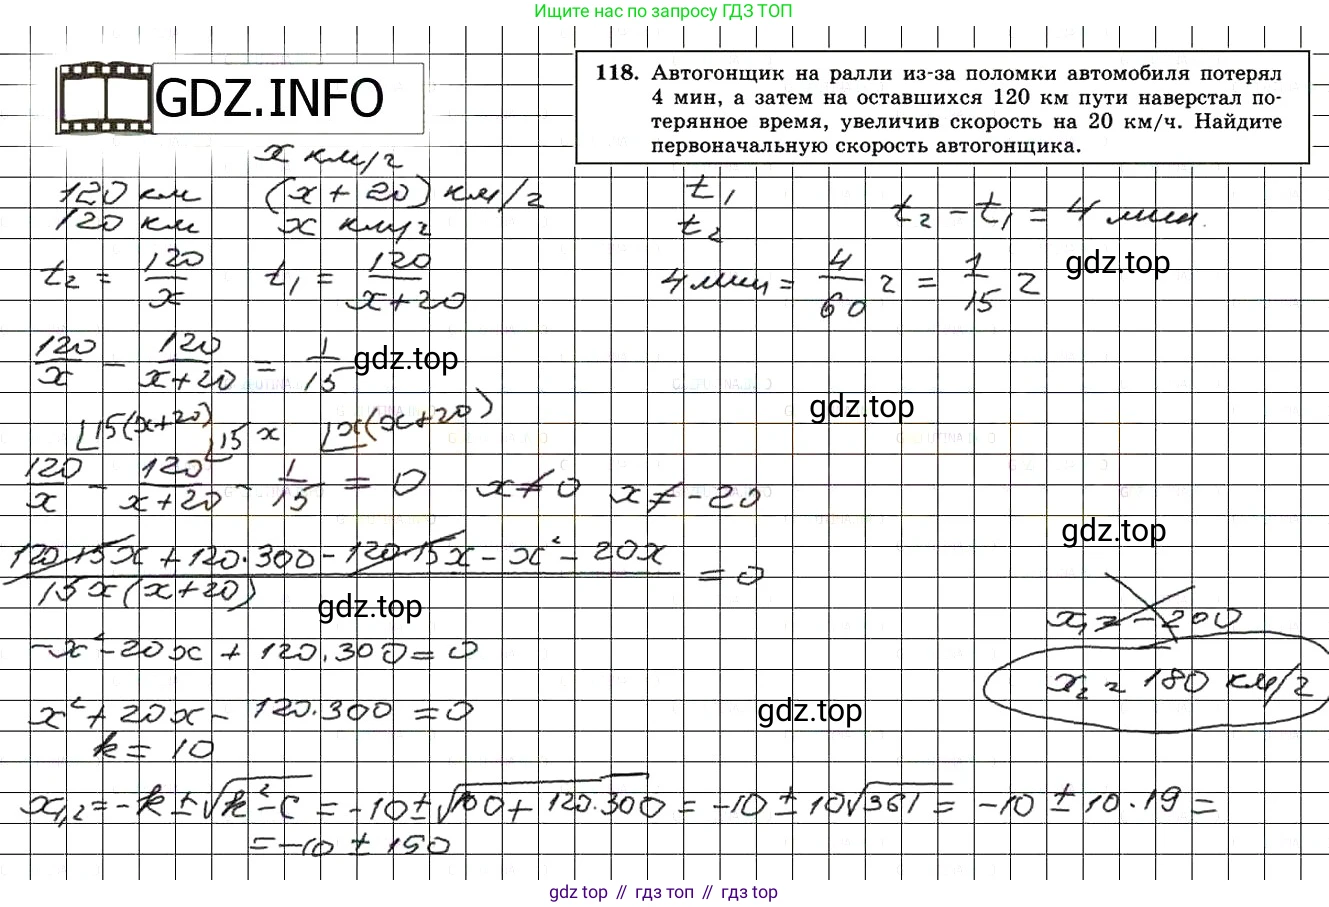 Ищите нас по запросу ГДЗ ТОП
GDZ.INFO
118. Автогонщик на ралли из-за поломки автомобиля потерял
4 мин, а затем на оставшихся 120 км пути наверстал по-
терянное время, увеличив скорость на 20 км/ч. Найдите
первоначальную скорость автогонщика.
x км/ч
120 км (x + 20) км/ч t₁
120 км x км/ч t₂
t₂ - t₁ = 4 мин.
t₂ = 120/x t₁ = 120/(x+20) 4 мин = 4/60 ч = 1/15 ч
gdz.top
120/x - 120/(x+20) = 1/15
gdz.top
gdz.top
15(x+20) 15x x(x+20)
120/x - 120/(x+20) - 1/15 = 0 x ≠ 0 x ≠ -20
gdz.top
(120·15x + 120·300 - 120·15x - x² - 20x)/(15x(x+20)) = 0
gdz.top
x₁ = -200
-x² - 20x + 120·300 = 0
x₂ = 180 км/ч
x² + 20x - 120·300 = 0
gdz.top
k = 10
x₁,₂ = -k ± √(k² - c) = -10 ± √(100 + 120·300) = -10 ± 10√361 = -10 ± 10·19 =
= -10 ± 190
gdz top // гдз топ // гдз top